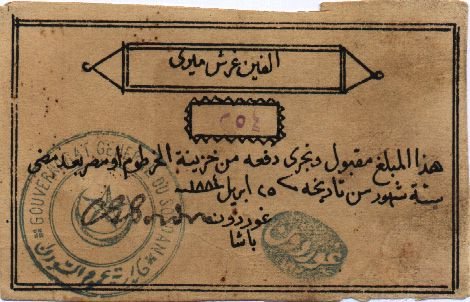 الفين غرش ميرى
هذا المبلغ مقبول ويجرى دفعه من خزينة الخرطوم او مصر بعد مضى
ستة شهور من تاريخه ٢٥ ابريل ١٨٨٤
غوردون
باشا
GENERAL DU SOUDAN
عموم السودان